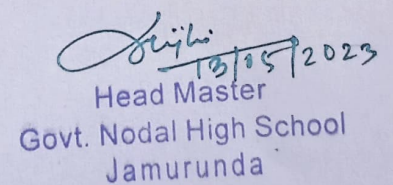 13/05/2023
Head Master
Govt. Nodal High School
Jamurunda